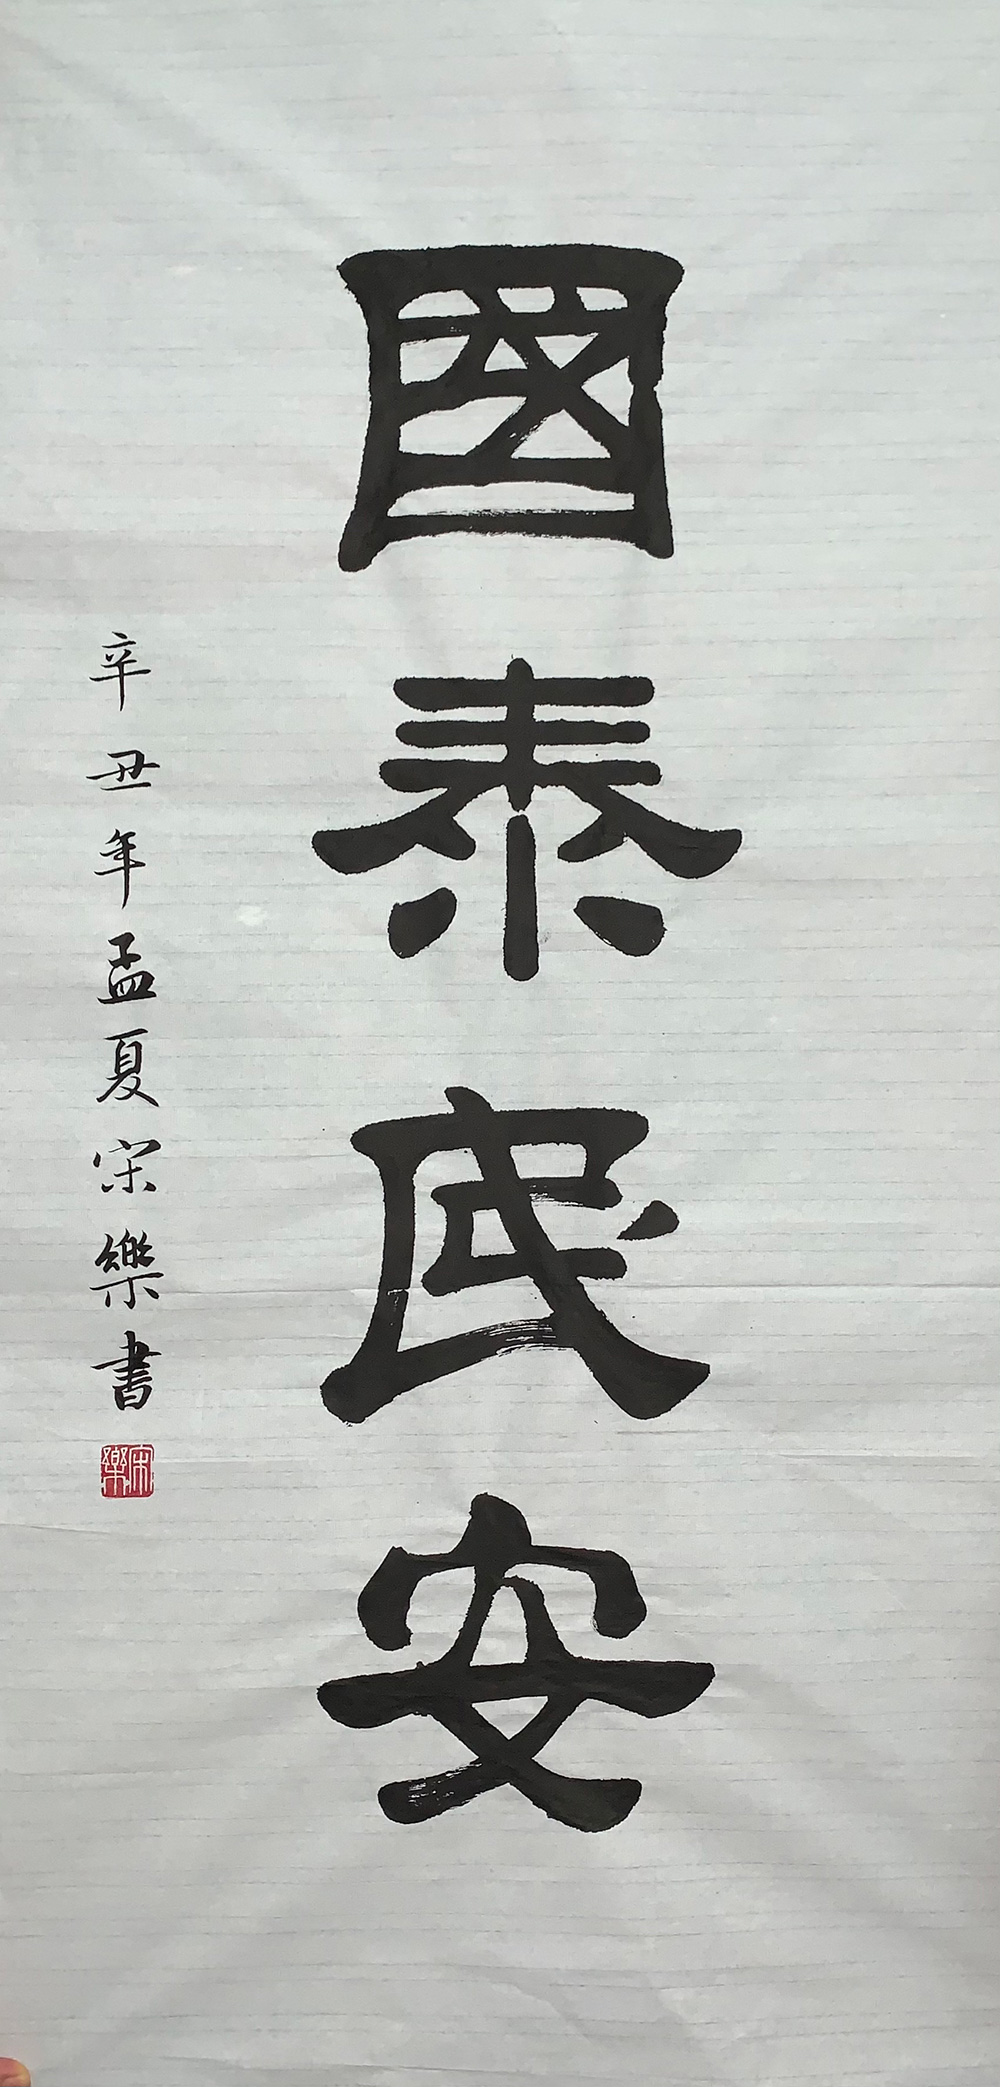 國泰民安
辛丑年孟夏宋樂書
宋樂